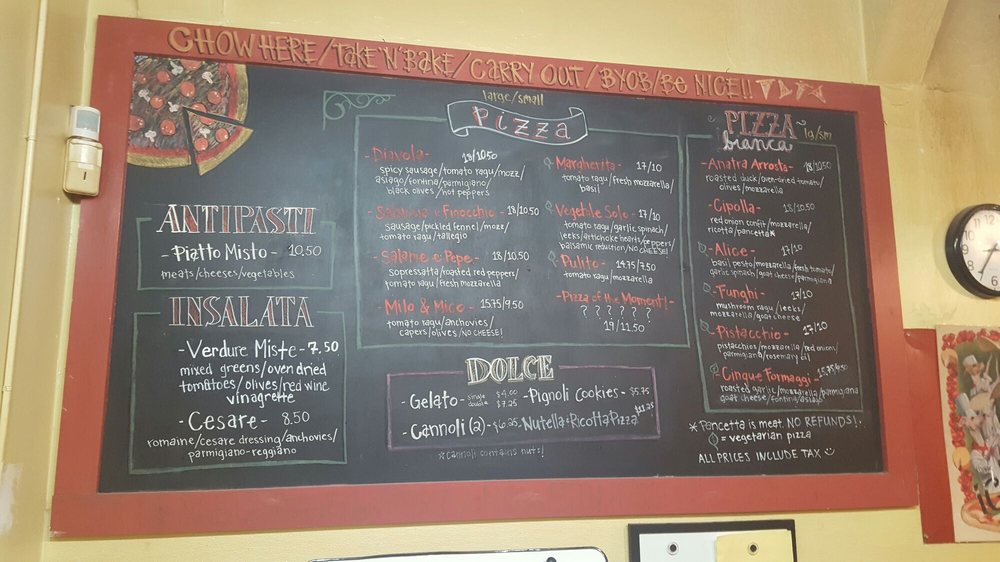 CHOW HERE/TAKE 'N' BAKE/CARRY OUT/BYOB/BE NICE!!
ANTIPASTI
-Piatto Misto- 10.50
meats/cheeses/vegetables
INSALATA
-Verdure Miste-7.50
mixed greens/oven dried
tomatoes/olives/red wine
vinagrette
-Cesare- 8.50
romaine/cesare dressing/anchovies/
parmigiano-reggiano
large/small
Pizza
-Diavola- 18/10.50
spicy sausage/tomato ragu/mozz/
asiago/fontina/parmigiano/
black olives/hot peppers
Finocchio - 18/10.50
sausage/pickled fennel/mozz/
tomato ragu/tallegio
-Salame e Pepe- 18/10.50
sopressatta/roasted red peppers/
tomato ragu/fresh mozzarella
-Milo & Mico- 15.75/9.50
tomato ragu/anchovies/
capers/olives/NO CHEESE!
-Margherita- 17/10
tomato ragu/fresh mozzarella/
basil
-Vegetale Solo-17/10
tomato ragu/garlic spinach/
leeks/artichoke hearts/peppers/
balsamic reduction/NO CHEESE!
-Pulito- 14.75/7.50
tomato ragu/mozzarella
-Pizza of the Moment!-
? ? ? ? ? ?
19/11.50
DOLCE
-Gelato- single $4.00
double $7.25
-Pignoli Cookies- $5.75
-Cannoli (2)-$6.25
Nutella & Ricotta Pizza
*Cannoli contains nuts!
PIZZA
bianca
lg/sm
-Anatra Arrosta- 18/10.50
roasted duck/oven-dried tomato/
olives/mozzarella
-Cipolla- 18/10.50
red onion confit/mozzarella/
ricotta/pancetta*
-Alice- 17/10
basil pesto/mozzarella/fresh tomato/
garlic spinach/goat cheese/parmigiana
-Funghi- 17/10
mushroom ragu/leeks/
mozzarella/goat cheese
-Pistacchio- 17/10
pistacchios/mozzarella/red onion/
parmigiano/rosemary oil
-Cinque Formaggi- 15.75/9.50
roasted garlic/mozzarella/parmigiana
goat cheese/fontina/asiago
*Pancetta is meat. NO REFUNDS!
= vegetarian pizza
ALL PRICES INCLUDE TAX